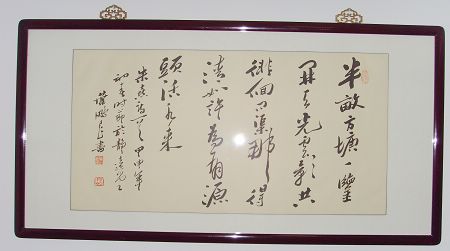 半畝方塘一鑒
開天光雲影共
徘徊問渠那得
清如許為有源
頭活水来
朱熹詩一首 甲申年
初春時節於靜
書